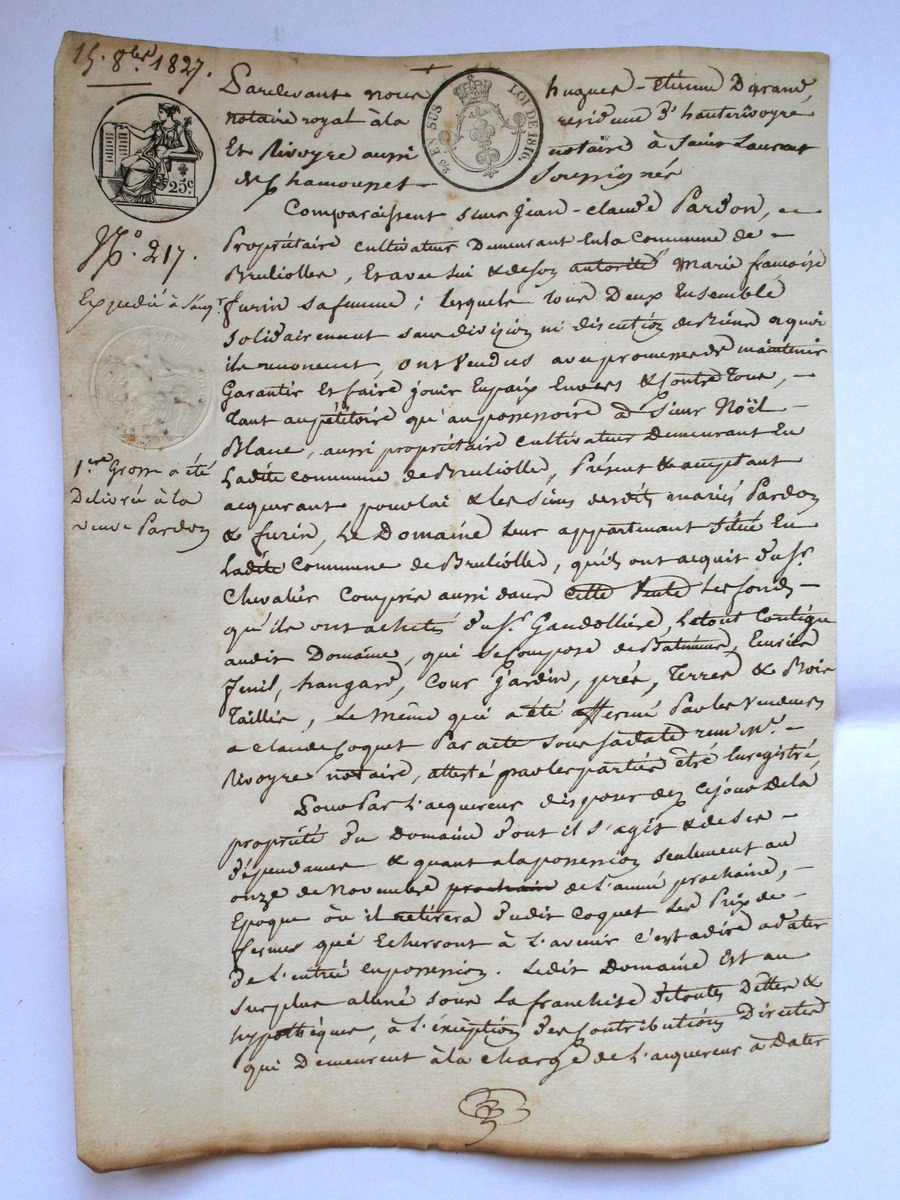 15. 8bre 1827.
25c.
25 EN SUS LOI DE 1816
N.° 217.
Expédié à l'acqr.
1ere Grosse a été
Delivrée à la
veuve Pardon
Pardevant nous hugues-étienne Durand,
notaire royal à la residence d'hauterivoyre
Et Rivoyre aussi notaire à Saint Laurent
de Chamousset Soussignés
Comparaissent sieur Jean-claude Pardon,
Propriétaire cultivateur Demeurant En la Commune de
Brulliolles, Et avec lui & de son autorité Marie françoise
furin sa femme; lesquels tous Deux Ensemble
solidairement sans division ni discution de Biens a quoi
ils renoncent, ont Vendus avec promesse de maintenir
Garantir Et faire jouir En paix Envers & Contre Tous,
Tant au pétitoire qu'au possessoire à Sieur Noël
Blanc, aussi propriétaire cultivateur Demeurant En
Ladite commune de Brulliolles, Présent & acceptant
acquerant pour lui & les siens desdits mariés Pardon
& furin, Le Domaine leur appartenant Situé En
Ladite Commune de Brulliolles, qu'ils ont acquit du sr.
Chevalier Compris aussi dans cette Vente Les fonds
qu'ils ont achetés du sr. Gaudollière, Le tout Contigu
audit Domaine, qui se Compose de Batiments, Ecuries
fenil, hangard, Cour Jardin, prés, Terres & Bois
Taillis, Le Même qui a été affermé Par les Vendeurs
a Claude Coquet Par acte sous sa date reçu Me.
Rivoyre notaire, attesté par les parties être Enregistré,
Pour Par L'acquereur disposer dez ce jour De la
propriété du Domaine dont il s'agit & de ses
dépendances & quant a la possession seulement au
onze de Novembre prochain de L'année prochaine,
Epoque où il retirera dudit Coquet Les Prix de
fermes qui Echerront à L'avenir c'est a dire a dater
de L'entrée en possession. Ledit Domaine Est au
surplus aliené sous La franchise de toutes Dettes &
hypothèques, à L'éxception des Contributions Directes
qui Demeurent à la charge de L'acquereur à Dater